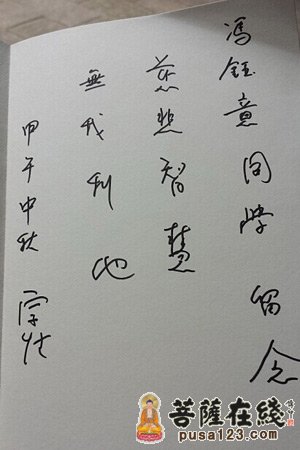 冯钰意同学留念
慈悲智慧
無我利他
甲午中秋 宗性
菩薩在綫
pusa123.com